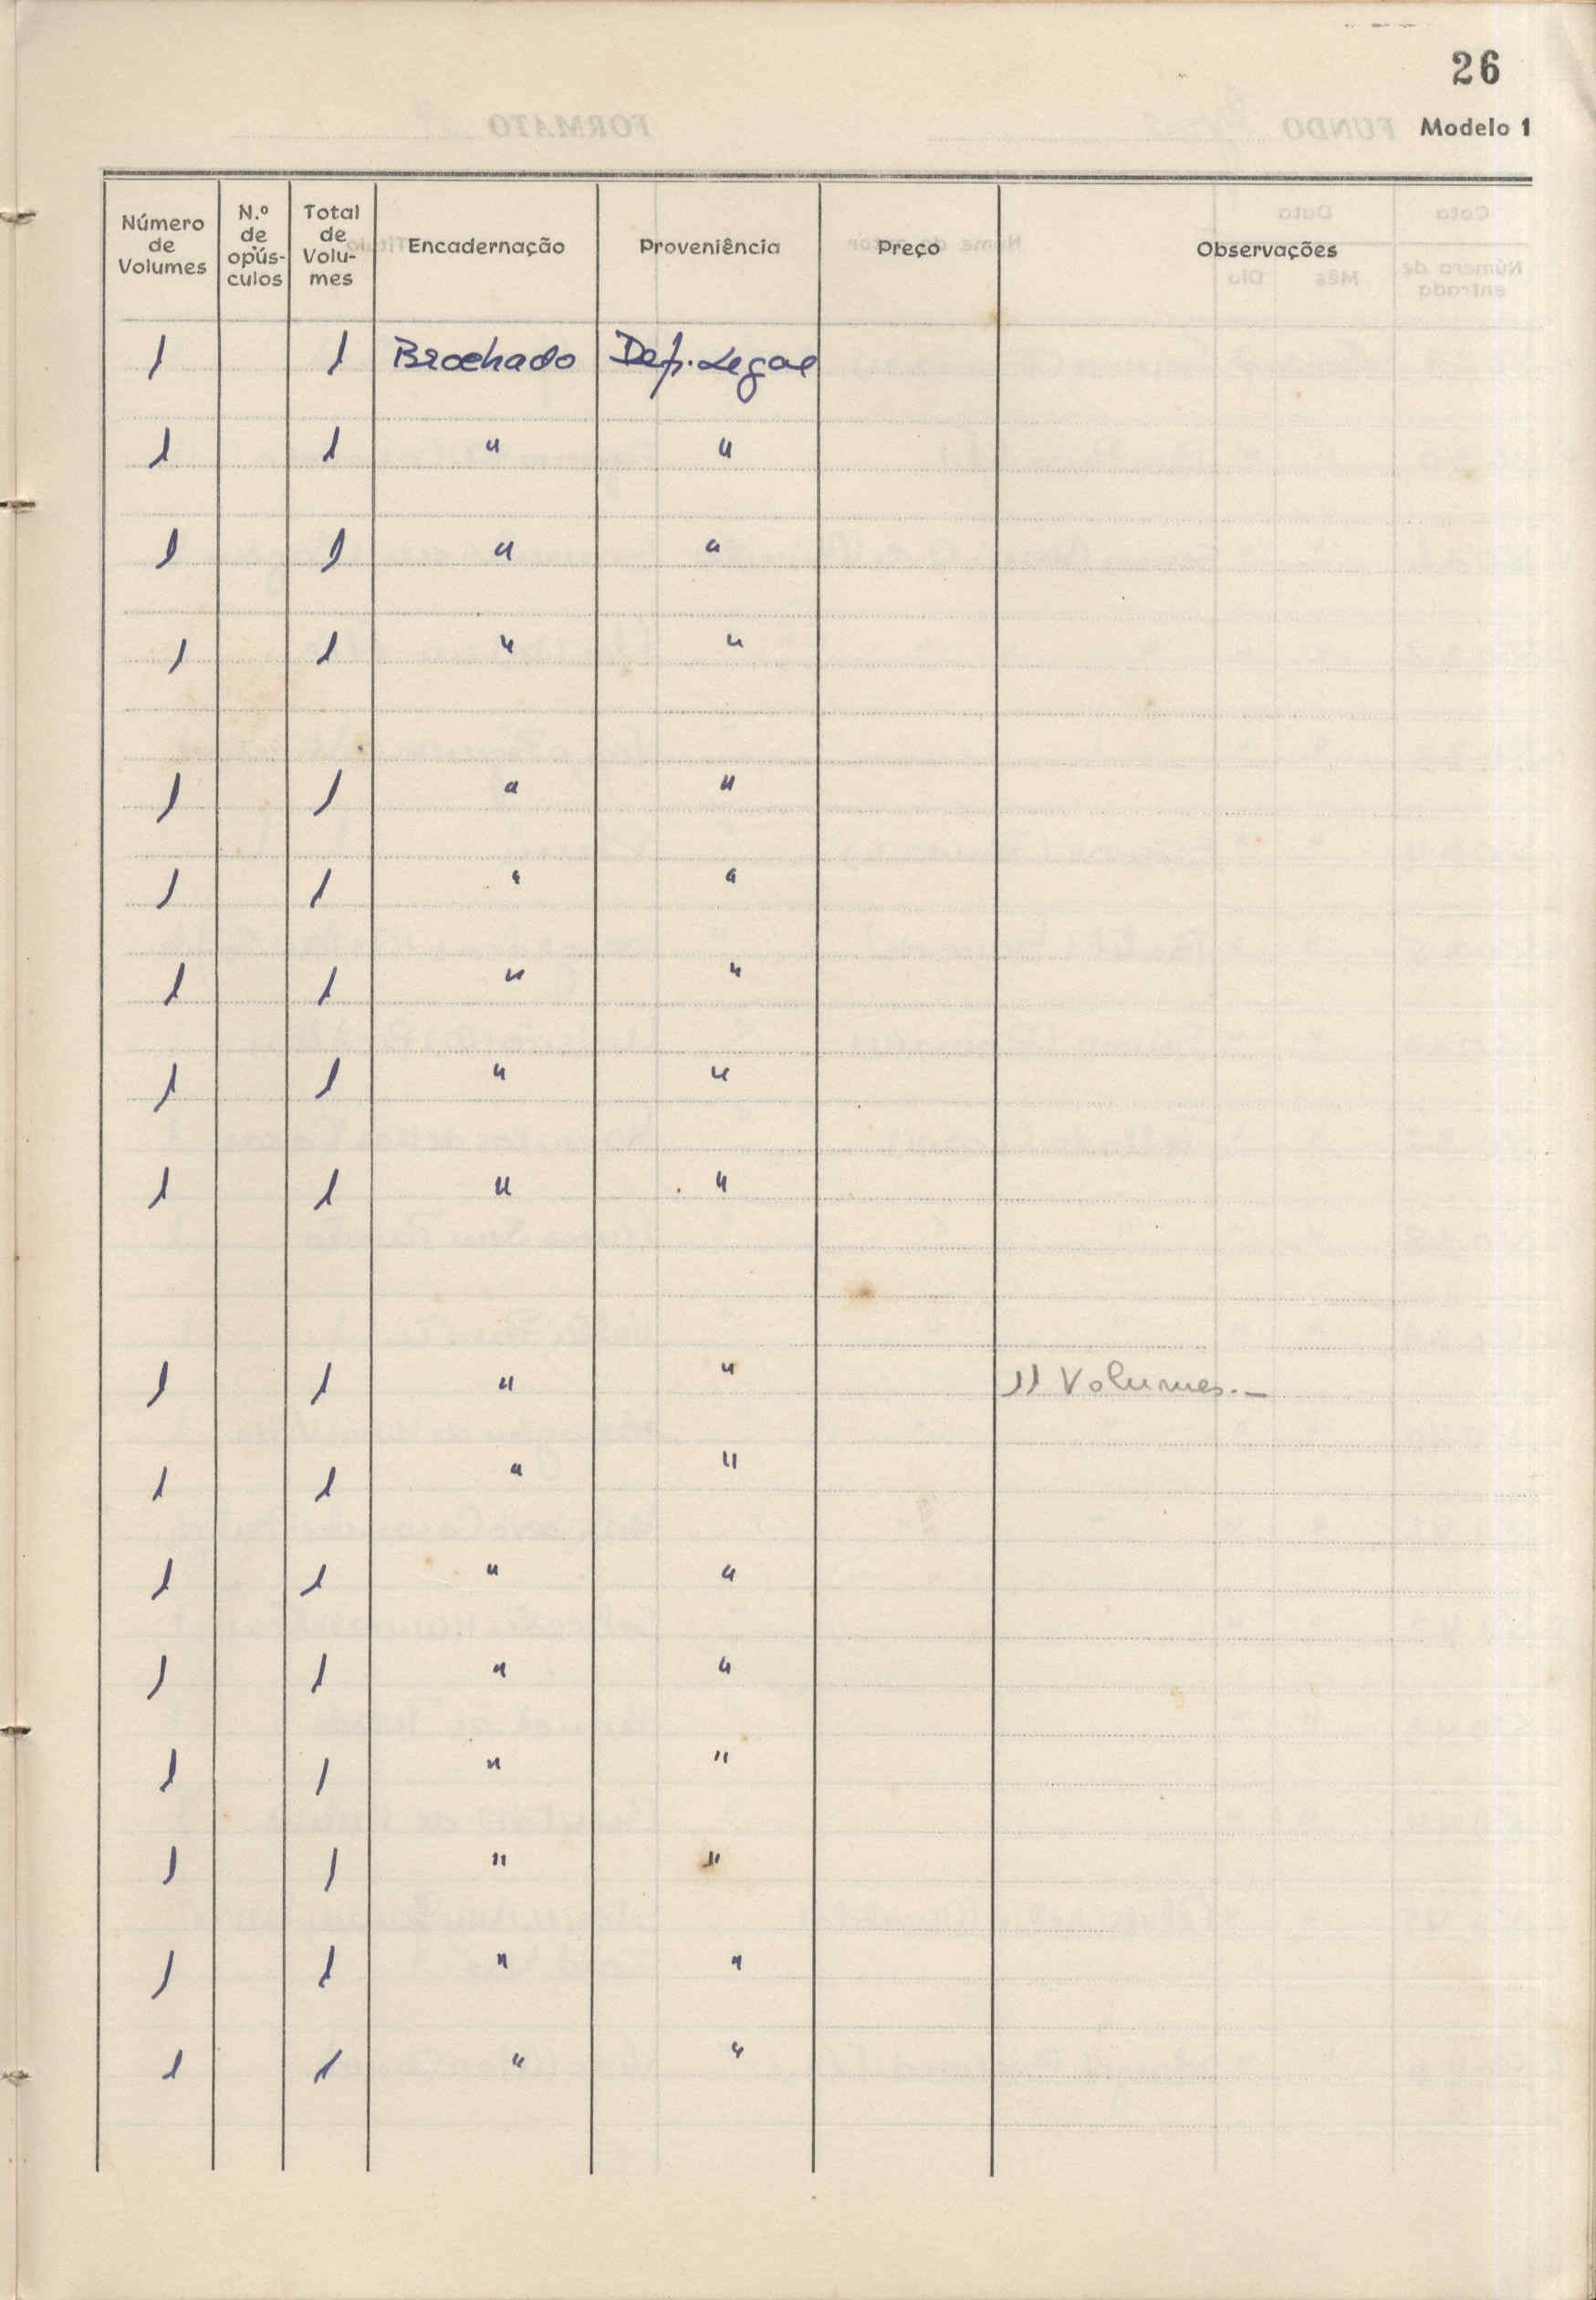 26
Modelo 1
Número de Volumes | N.º de opúsculos | Total de Volumes | Encadernação | Proveniência | Preço | Observações
1 1 Brochado Dep. Legal
1 1 " "
1 1 " "
1 1 " "
1 1 " "
1 1 " "
1 1 " "
1 1 " "
1 1 " "
1 1 " " 11 Volumes.—
1 1 " "
1 1 " "
1 1 " "
1 1 " "
1 1 " "
1 1 " "
1 1 " "